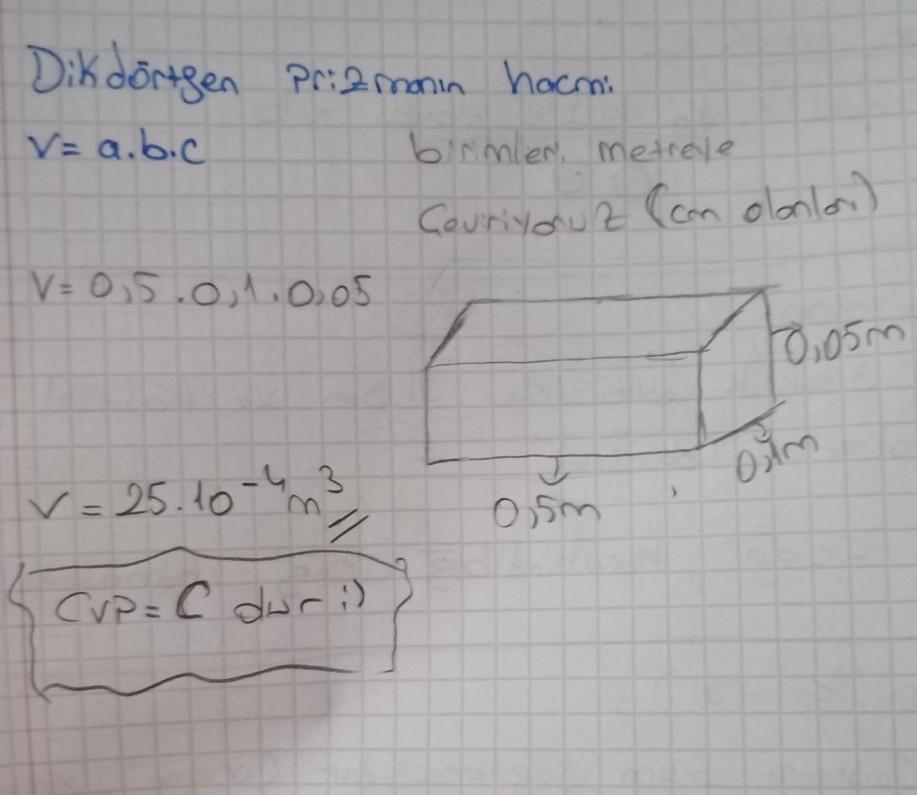 Dikdörtgen Prizmanın hacmi
V = a.b.c
birimleri metreye
Çeviriyoruz (cm olanları)
V = 0,5 . 0,1 . 0,05
0,05m
0,1m
0,5m
V = 25.10⁻⁴ m³
CVP = C dur :)